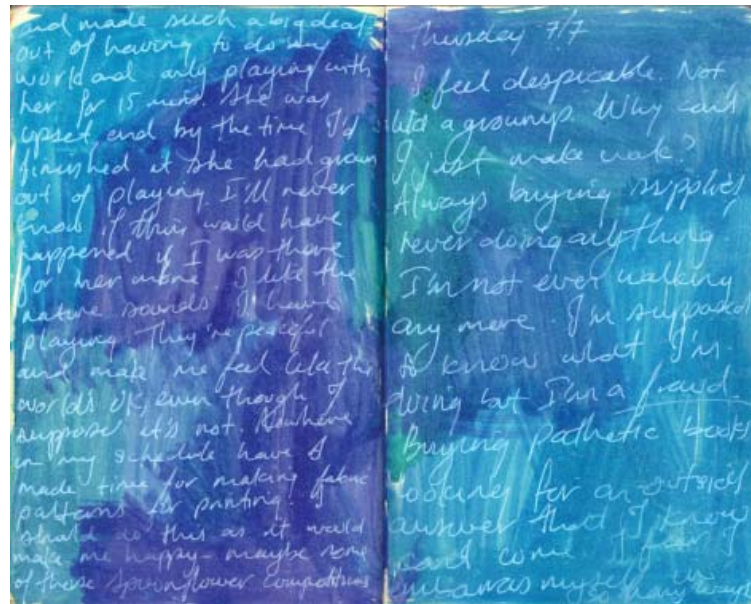 and made such a big deal
out of having to do my
world and only playing with
her for 15 mins. She was
upset and by the time I'd
finished it she had grown
out of playing I'll never
know if this would have
happened if I was there
for her more. I like the
nature sounds I have
playing. They're peaceful
and make me feel like the
world's OK, even though I
suppose it's not. Nowhere
in my schedule have I
made time for making fabric
patterns for printing. I
should do this as it would
make me happy - maybe some
of those Spoonflower competitions
Thursday 7/7
I feel despicable. Not
a grownup. Why can't
I just make work?
Always buying supplies,
never doing anything.
I'm not even walking
any more. I'm supposed
to know what I'm
doing but I'm a fraud.
Buying pathetic books
looking for an outside
answer that I know
can't come. I fear I
embarrass myself in
so many ways